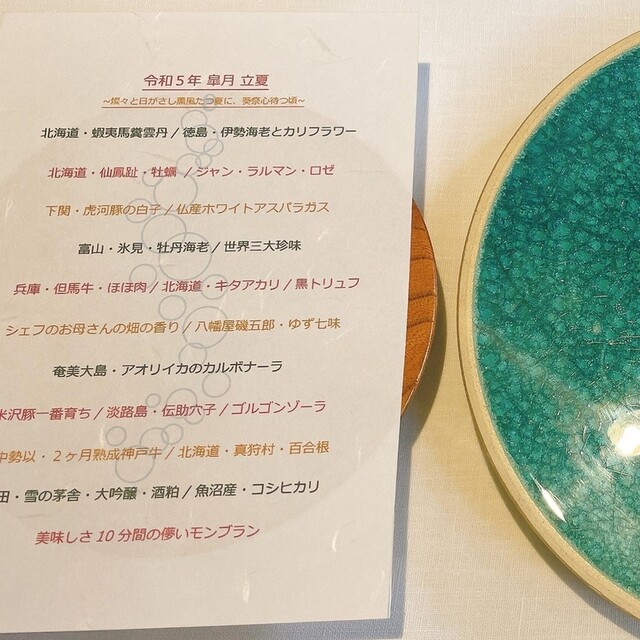 令和５年 皐月 立夏
～燦々と日がさし薫風たつ夏に、葵祭心待つ頃～
北海道・蝦夷馬糞雲丹 / 徳島・伊勢海老とカリフラワー
北海道・仙鳳趾・牡蠣 / ジャン・ラルマン・ロゼ
下関・虎河豚の白子 / 仏産ホワイトアスパラガス
富山・氷見・牡丹海老 / 世界三大珍味
兵庫・但馬牛・ほほ肉 / 北海道・キタアカリ / 黒トリュフ
シェフのお母さんの畑の香り / 八幡屋礒五郎・ゆず七味
奄美大島・アオリイカのカルボナーラ
米沢豚一番育ち / 淡路島・伝助穴子 / ゴルゴンゾーラ
中勢以・２ヶ月熟成神戸牛 / 北海道・真狩村・百合根
田・雪の茅舎・大吟醸・酒粕 / 魚沼産・コシヒカリ
美味しさ 10 分間の儚いモンブラン